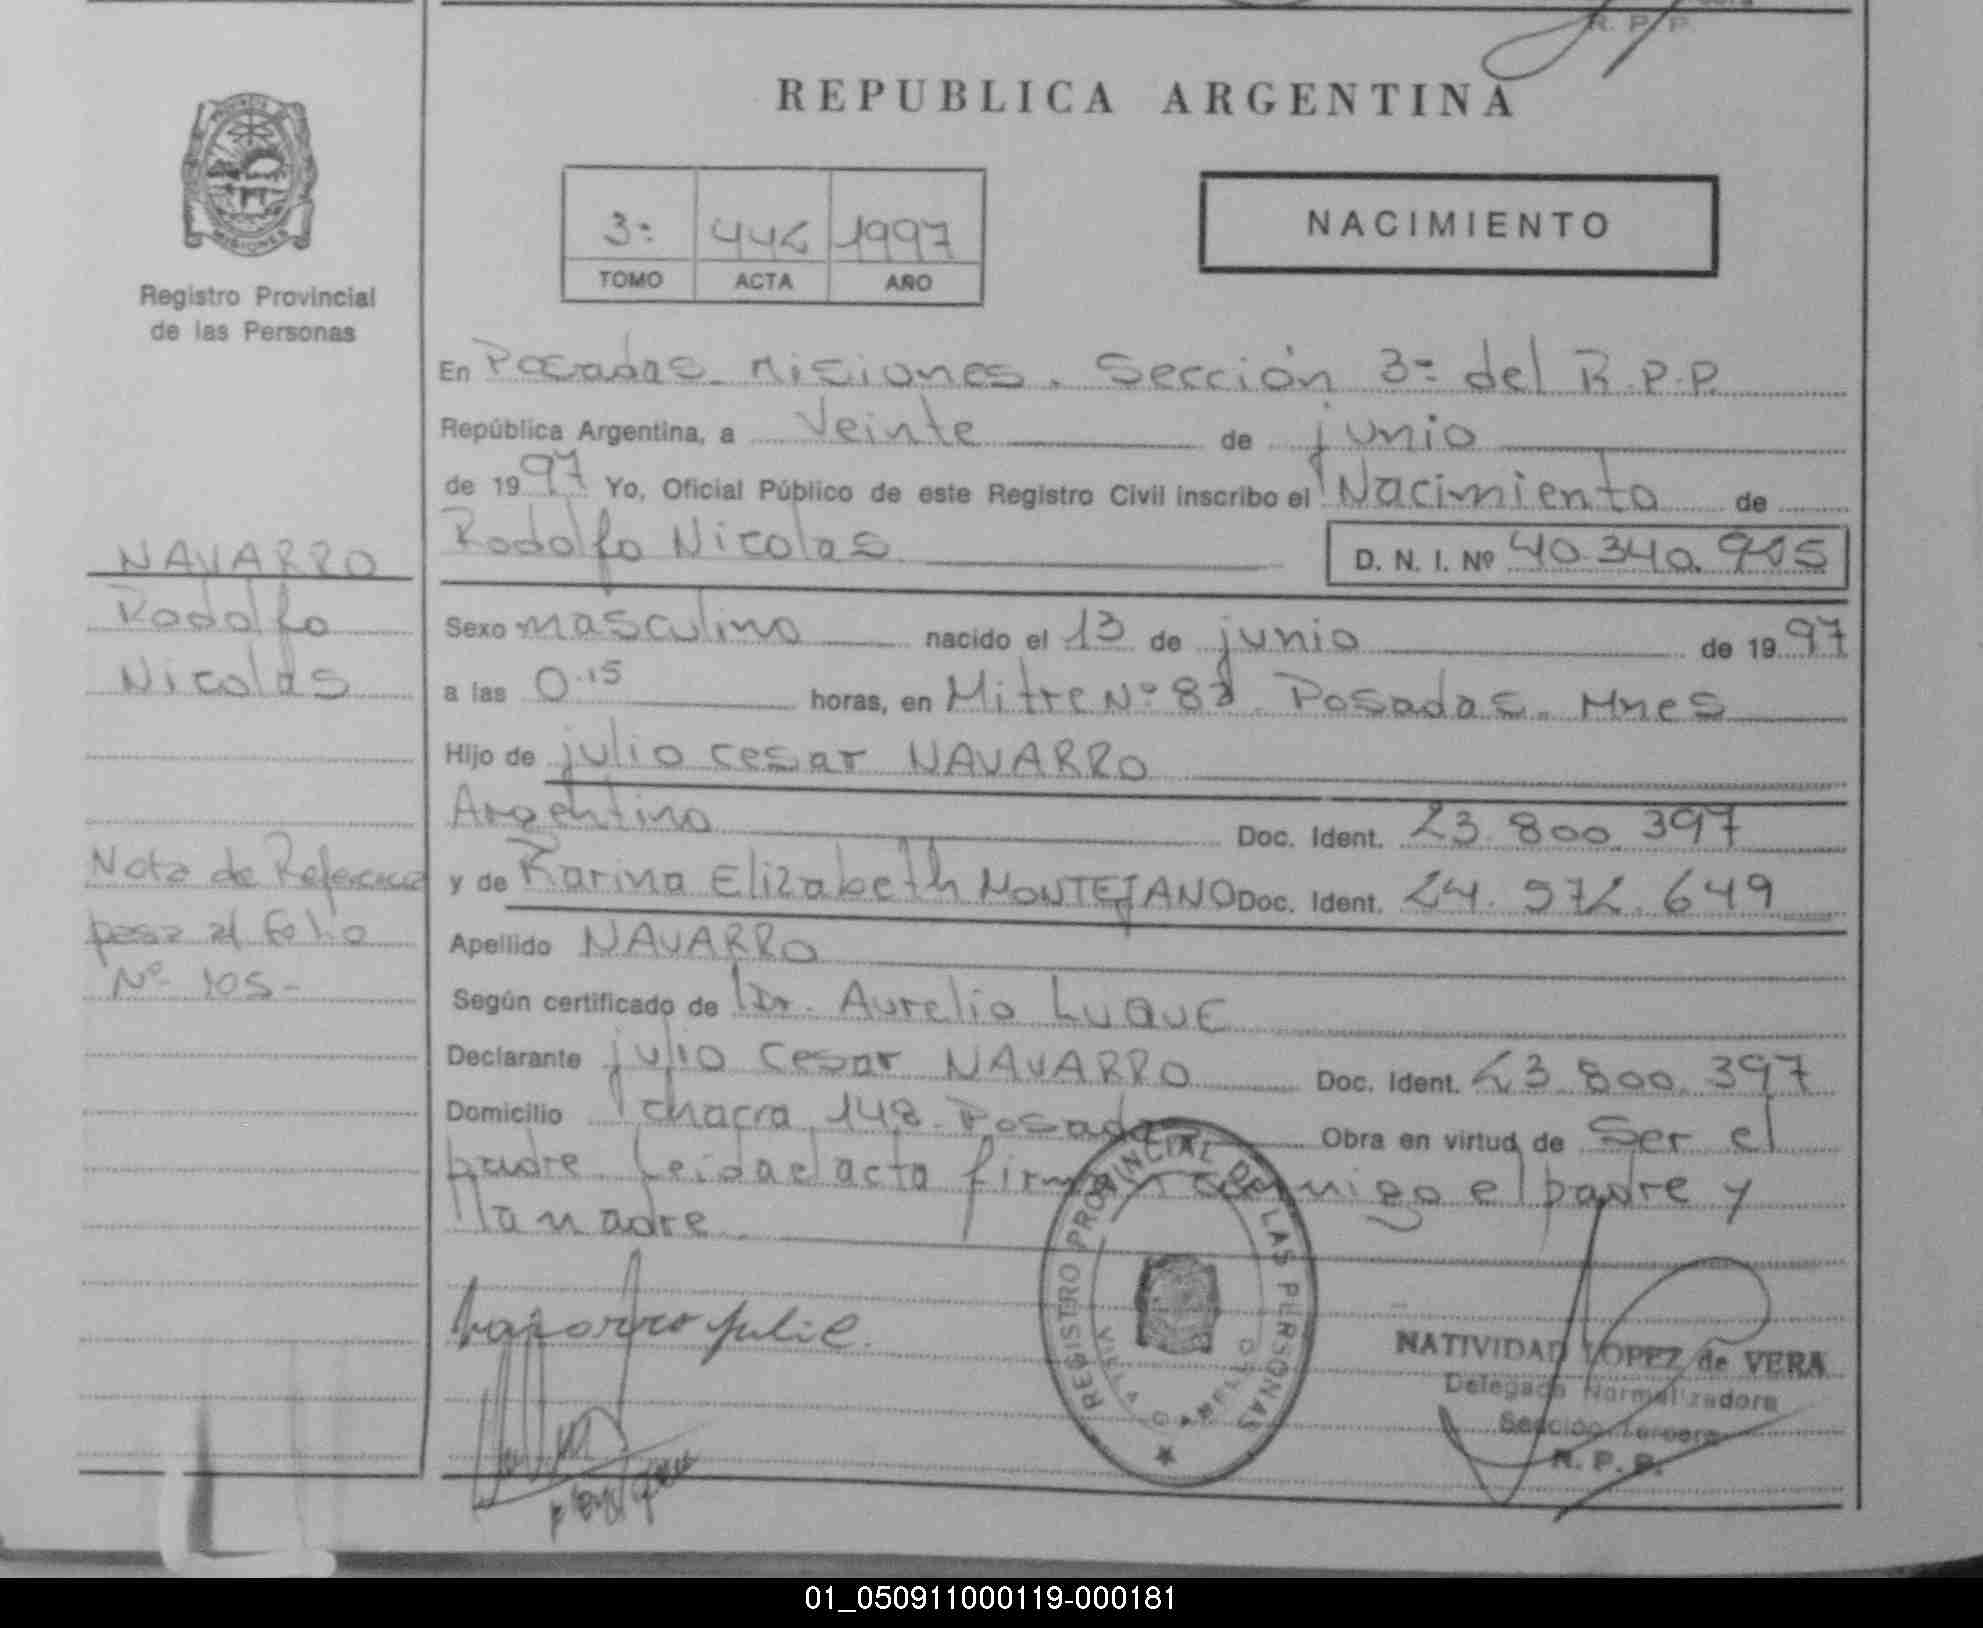 R. P. P.
REPUBLICA ARGENTINA
MISIONES
Registro Provincial
de las Personas
3º 446 1997
TOMO ACTA AÑO
NACIMIENTO
En Posadas Misiones. Sección 3º del R.P.P.
República Argentina, a Veinte de junio
de 1997 Yo, Oficial Público de este Registro Civil inscribo el Nacimiento de
Rodolfo Nicolas D. N. I. Nº 40.340.905
NAVARRO
Rodolfo
Nicolás
Sexo masculino nacido el 13 de junio de 1997
a las 0.15 horas, en Mitre Nº 83 Posadas. Mnes
Hijo de julio cesar NAVARRO
Argentino Doc. Ident. 23.800.397
y de Karina Elizabeth MONTEJANO Doc. Ident. 24.572.649
Apellido NAVARRO
Según certificado de Dr. Aurelio LUQUE
Declarante julio Cesar NAVARRO Doc. Ident. 23.800.397
Domicilio chacra 148. Posadas Obra en virtud de Ser el
padre Leida el acta firma conmigo el padre y
la madre
Nota de Referencia
pasa al folio
Nº 105-
Navarro Julio
REGISTRO PROVINCIAL DE LAS PERSONAS
VILLA CABELLO
NATIVIDAD LOPEZ de VERA
Delegada Normalizadora
Sección Tercera
R. P. P.
01_050911000119-000181